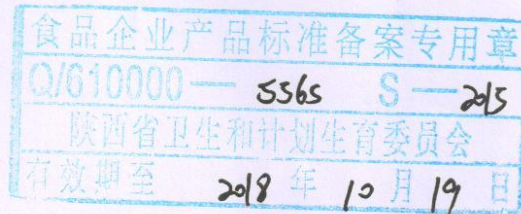 食品企业产品标准备案专用章
Q/610000— 5565 S—2015
陕西省卫生和计划生育委员会
有效期至 2018 年 10 月 19 日